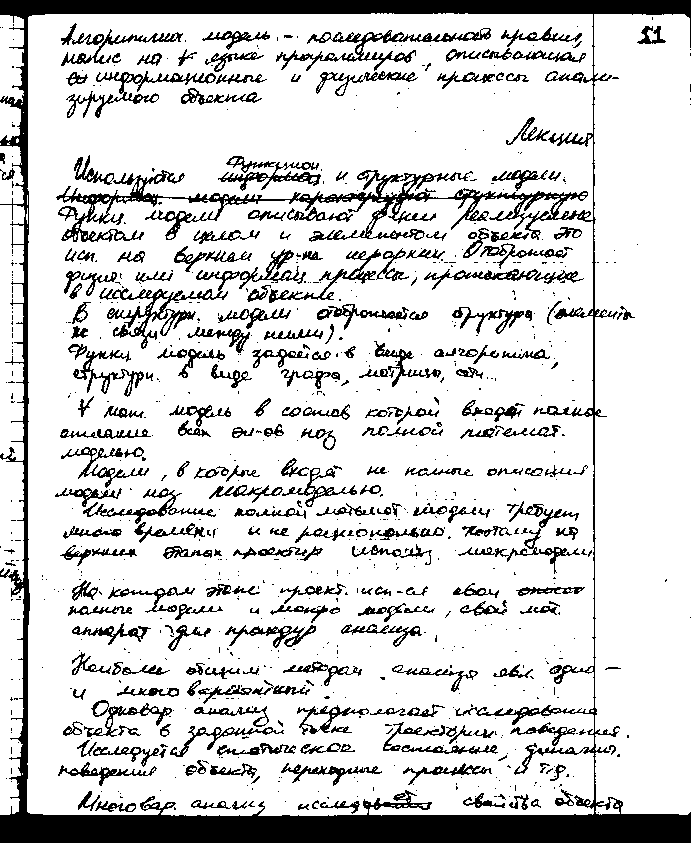 51
Алгоритмич. модель - последовательность правил,
напис на ∀ языке программиров, описывающая
информационные и физические процессы анали-
зируемого объекта
Лекция
Функцион
Используются информац и структурные модели.
модели характеризуют структурную
Функц. модели описывают
объектом в целом и элементом объекта. Это
исп. на верхнем ур-не иерархии. Отображает
физич. или информац процессы, протекающие
в исследуемом объекте.
В структурн. модели отображается структура (элементы
связи между ними).
Функц модель задаётся в виде алгоритма,
структурн. в виде графа, матрицы,
∀ мат. модель в состав которой входят полное
описание всех эл-ов наз полной математ.
моделью.
Модели, в которые входят не полные описания
модели наз макромоделью.
Исследование полной математ модели требует
много времени и не рационально. Поэтому на
верхних этапах проектир использ макромодели
На каждом этапе проект. исп-ся свои
полные модели и макро модели, свой мат
аппарат для процедур анализа.
Наиболее общим методам анализа явл одно -
и многовариантный.
Одновар анализ предполагает исследование
объекта в заданной точке траектории поведения.
Исследуется статическое состояние, динамич.
поведения объекта, переходные процессы и т.д.
Многовар. анализ исследует свойства объекта